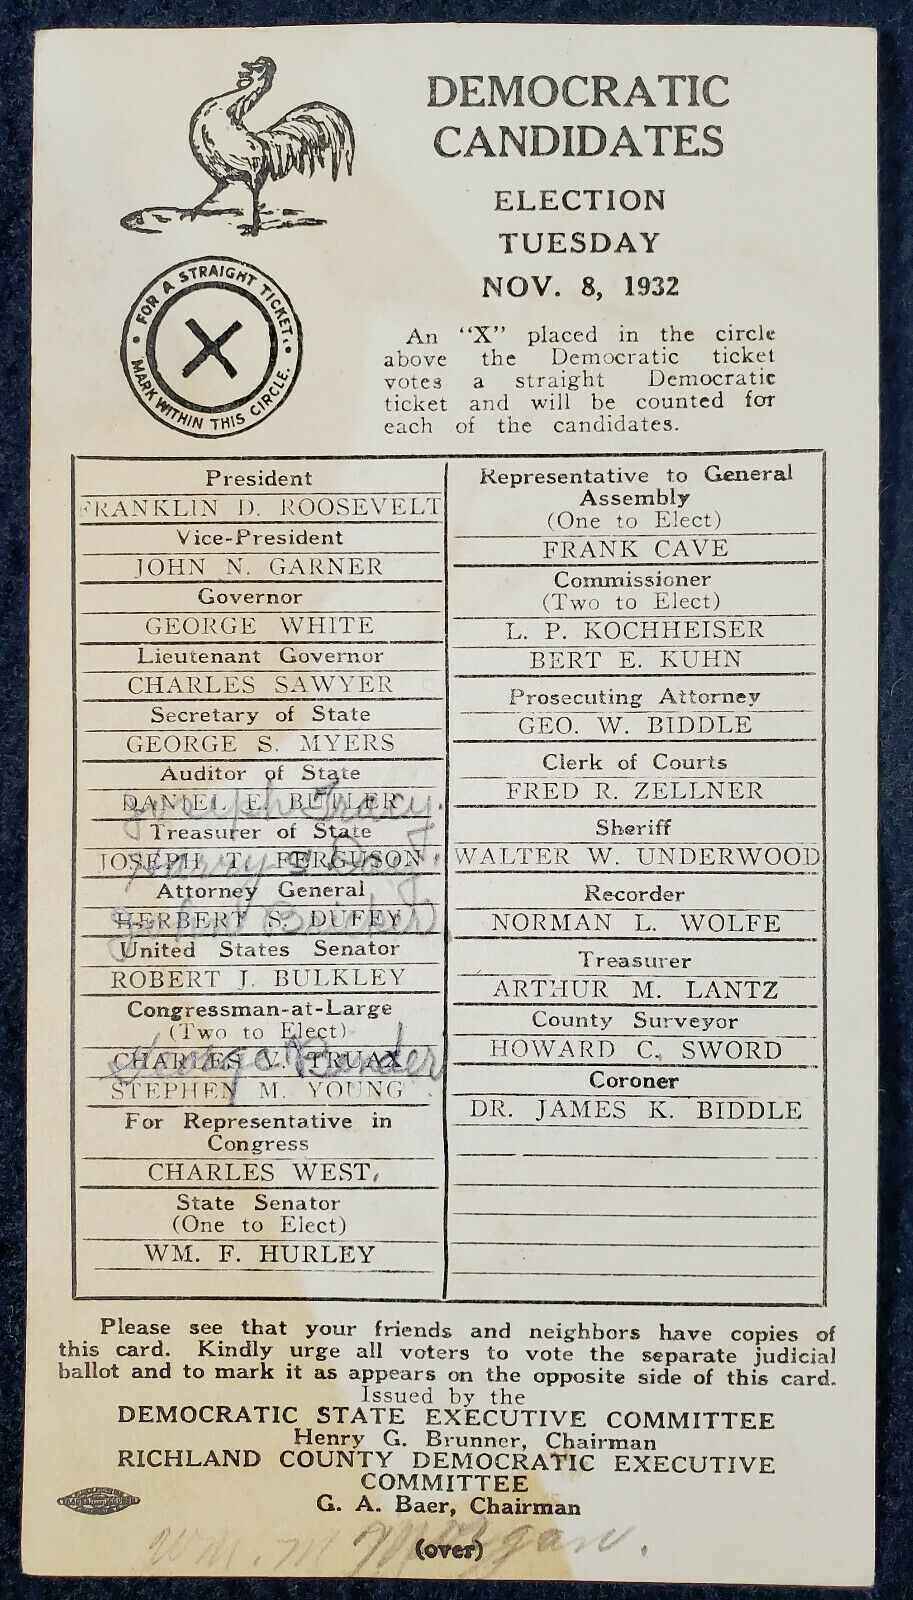 DEMOCRATIC
CANDIDATES
ELECTION
TUESDAY
NOV. 8, 1932
FOR A STRAIGHT TICKET.
MARK WITHIN THIS CIRCLE.
X
An "X" placed in the circle
above the Democratic ticket
votes a straight Democratic
ticket and will be counted for
each of the candidates.
President
FRANKLIN D. ROOSEVELT
Vice-President
JOHN N. GARNER
Governor
GEORGE WHITE
Lieutenant Governor
CHARLES SAWYER
Secretary of State
GEORGE S. MYERS
Auditor of State
DANIEL E. BUTLER
Joseph Tracy.
Treasurer of State
JOSEPH T. FERGUSON
Harry Day.
Attorney General
HERBERT S. DUFFY
John Bricker
United States Senator
ROBERT J. BULKLEY
Congressman-at-Large
(Two to Elect)
CHARLES V. TRUAX
George Bender
STEPHEN M. YOUNG
For Representative in
Congress
CHARLES WEST.
State Senator
(One to Elect)
WM. F. HURLEY
Representative to General
Assembly
(One to Elect)
FRANK CAVE
Commissioner
(Two to Elect)
L. P. KOCHHEISER
BERT E. KUHN
Prosecuting Attorney
GEO. W. BIDDLE
Clerk of Courts
FRED R. ZELLNER
Sheriff
WALTER W. UNDERWOOD
Recorder
NORMAN L. WOLFE
Treasurer
ARTHUR M. LANTZ
County Surveyor
HOWARD C. SWORD
Coroner
DR. JAMES K. BIDDLE
Please see that your friends and neighbors have copies of
this card. Kindly urge all voters to vote the separate judicial
ballot and to mark it as appears on the opposite side of this card.
Issued by the
DEMOCRATIC STATE EXECUTIVE COMMITTEE
Henry G. Brunner, Chairman
RICHLAND COUNTY DEMOCRATIC EXECUTIVE
COMMITTEE
G. A. Baer, Chairman
(over)
Wm. M Morgan.